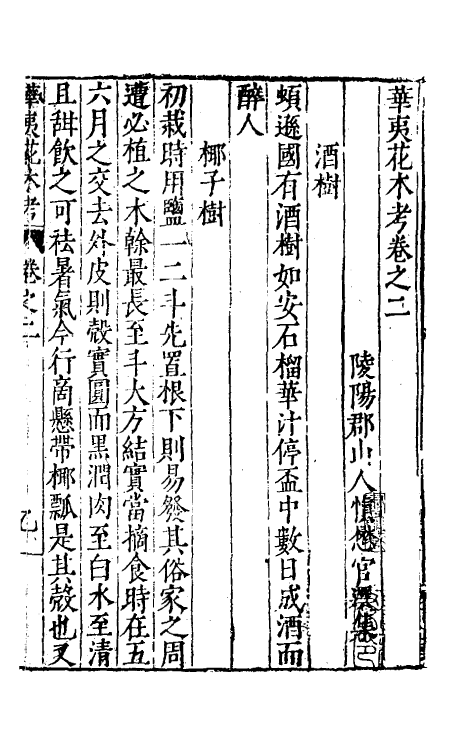 華夷花木考卷之二
陵陽郡山人慎懋官集
酒樹
頓遜國有酒樹如安石榴華汁停盃中數日成酒而
醉人
椰子樹
初栽時用鹽一二斗先置根下則易發其俗家之周
遭必植之木幹最長至斗大方結實當摘食時在五
六月之交去外皮則殼實圓而黑潤肉至白水至清
且甜飲之可祛暑氣今行啇懸帶椰瓢是其殼也又
華夷花木考 卷之二